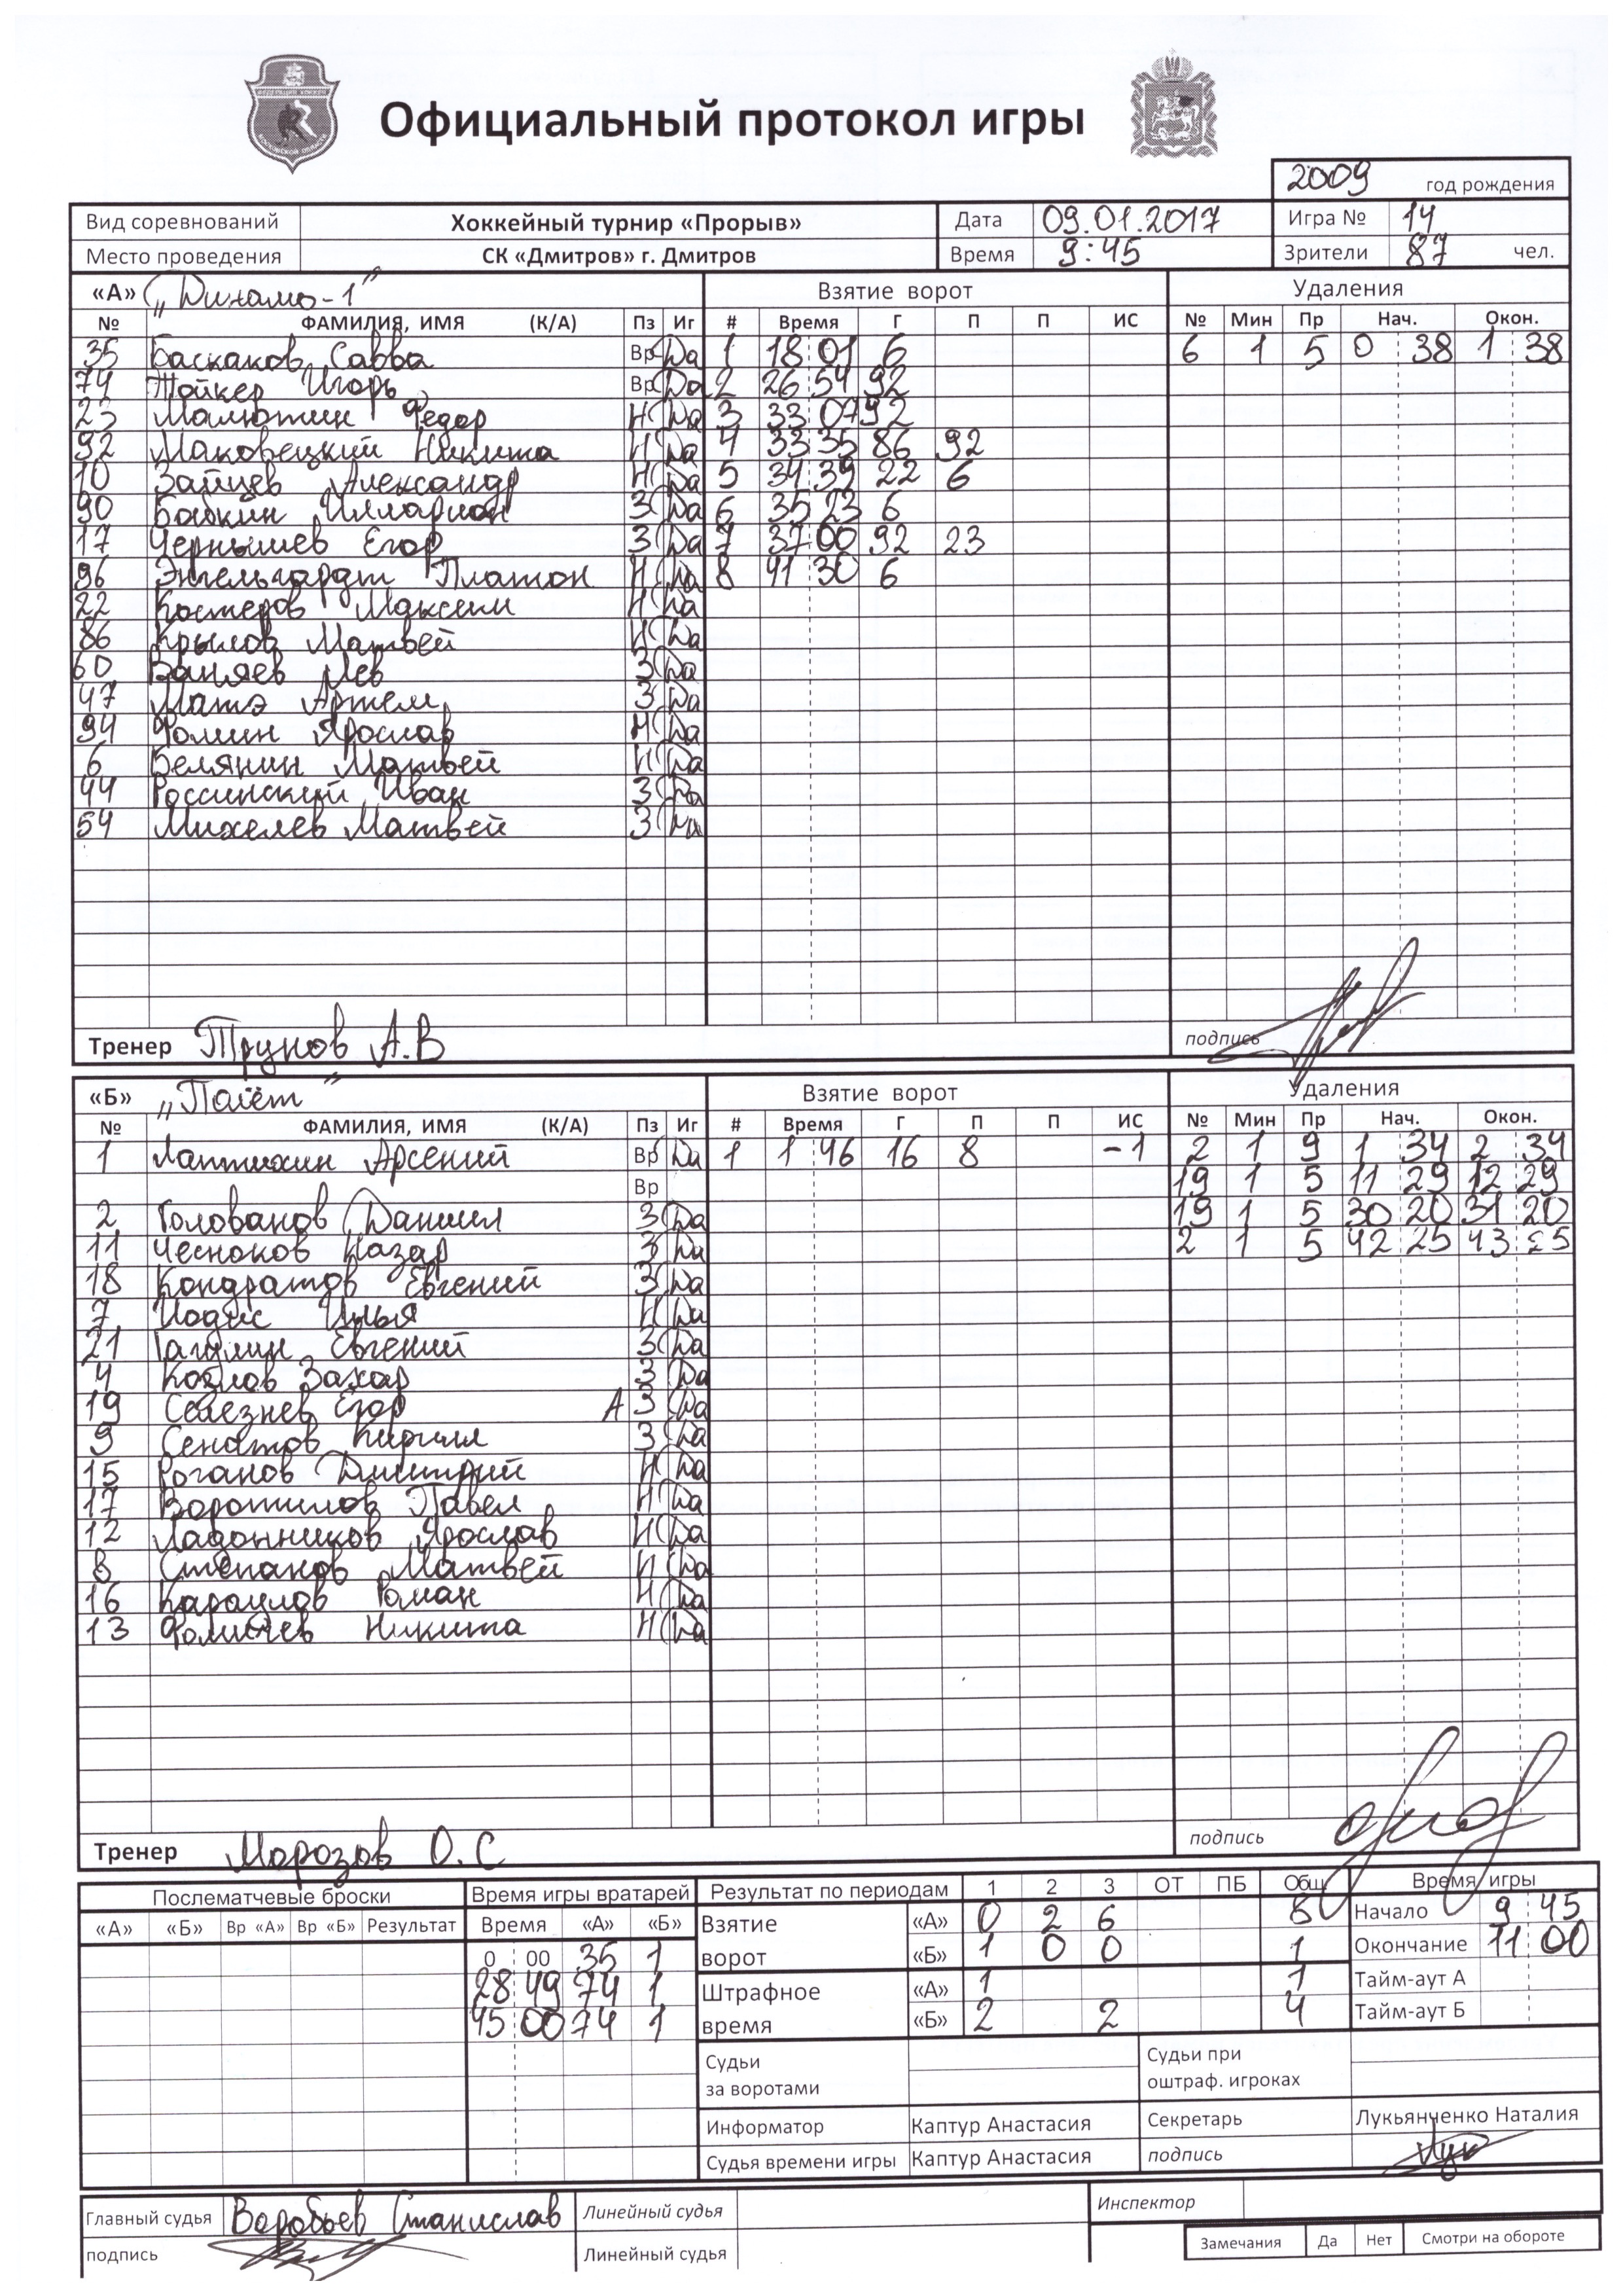 Официальный протокол игры
2009 год рождения
Вид соревнований Хоккейный турнир «Прорыв» Дата 09.01.2017 Игра № 14
Место проведения СК «Дмитров» г. Дмитров Время 9:45 Зрители 87 чел.
«А» „Динамо-1" Взятие ворот Удаления
№ ФАМИЛИЯ, ИМЯ (К/А) Пз Иг # Время Г П П ИС № Мин Пр Нач. Окон.
35 Баскаков Савва Вр Да 1 18 01 6 6 1 5 0 38 1 38
74 Тойкер Игорь Вр Да 2 26 54 92
23 Малютин Федор Н Да 3 33 07 92
92 Маковецкий Никита Н Да 4 33 35 86 92
10 Зайцев Александр Н Да 5 34 39 22 6
90 Бабкин Илларион З Да 6 35 23 6
17 Чернышев Егор З Да 7 37 00 92 23
96 Энгельгардт Платон Н Да 8 41 30 6
22 Костеров Максим Н Да
86 Крылов Матвей Н Да
60 Ваняев Лев З Да
47 Матэ Артем З Да
94 Фомин Ярослав Н Да
6 Белянин Матвей Н Да
44 Россинский Иван З Да
54 Михелев Матвей З Да
Тренер Трунов А.В подпись
«Б» „Полёт" Взятие ворот Удаления
№ ФАМИЛИЯ, ИМЯ (К/А) Пз Иг # Время Г П П ИС № Мин Пр Нач. Окон.
1 Лаптихин Арсений Вр Да 1 1 46 16 8 -1 2 1 9 1 34 2 34
Вр 19 1 5 11 29 12 29
2 Голованов Даниил З Да 19 1 5 30 20 31 20
11 Чесноков Назар З Да 2 1 5 42 25 43 25
18 Кондратов Евгений З Да
7 Илья Н Да
21 Евгений З Да
4 Козлов Захар З Да
19 Селезнев Егор А З Да
9 Сенатов Кирилл З Да
15 Роганов Дмитрий Н Да
17 Воротилов Павел Н Да
12 Ладонников Ярослав Н Да
8 Степанов Матвей Н Да
16 Караулов Роман Н Да
13 Фомичев Никита Н Да
Тренер Морозов О.С подпись
Послематчевые броски Время игры вратарей Результат по периодам 1 2 3 ОТ ПБ Общ Время игры
«А» «Б» Вр «А» Вр «Б» Результат Время «А» «Б» Взятие ворот «А» 0 2 6 8 Начало 9 45
0 00 35 1 «Б» 1 0 0 1 Окончание 11 00
28 49 74 1 Штрафное время «А» 1 1 Тайм-аут А
45 00 74 1 «Б» 2 2 4 Тайм-аут Б
Судьи за воротами Судьи при оштраф. игроках
Информатор Каптур Анастасия Секретарь Лукьянченко Наталия
Судья времени игры Каптур Анастасия подпись
Главный судья Воробьев Станислав Линейный судья Инспектор
подпись Линейный судья Замечания Да Нет Смотри на обороте